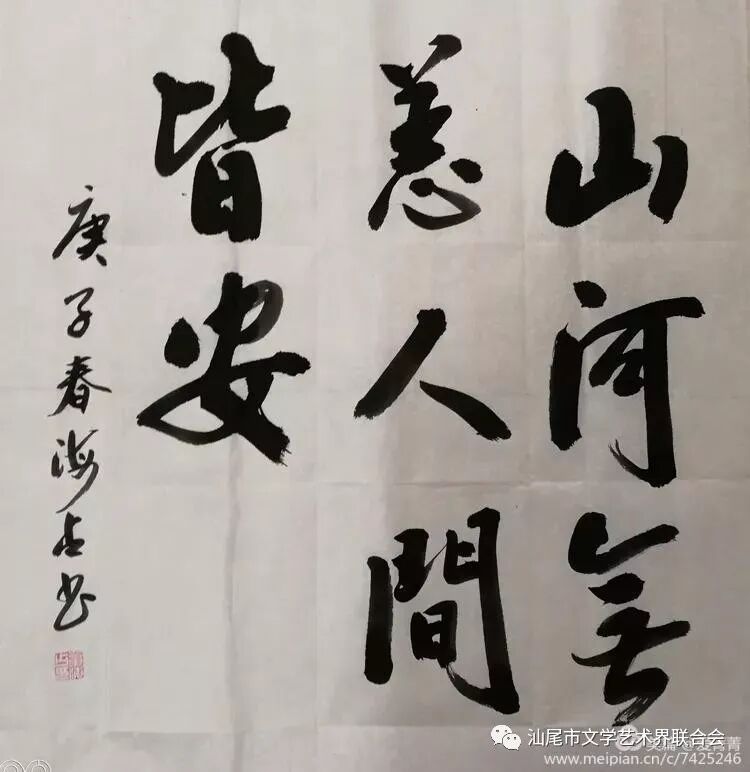 山河無
恙人間
皆安
庚子春海占书
汕尾市文学艺术界联合会
www.meipian.cn/c/7425246